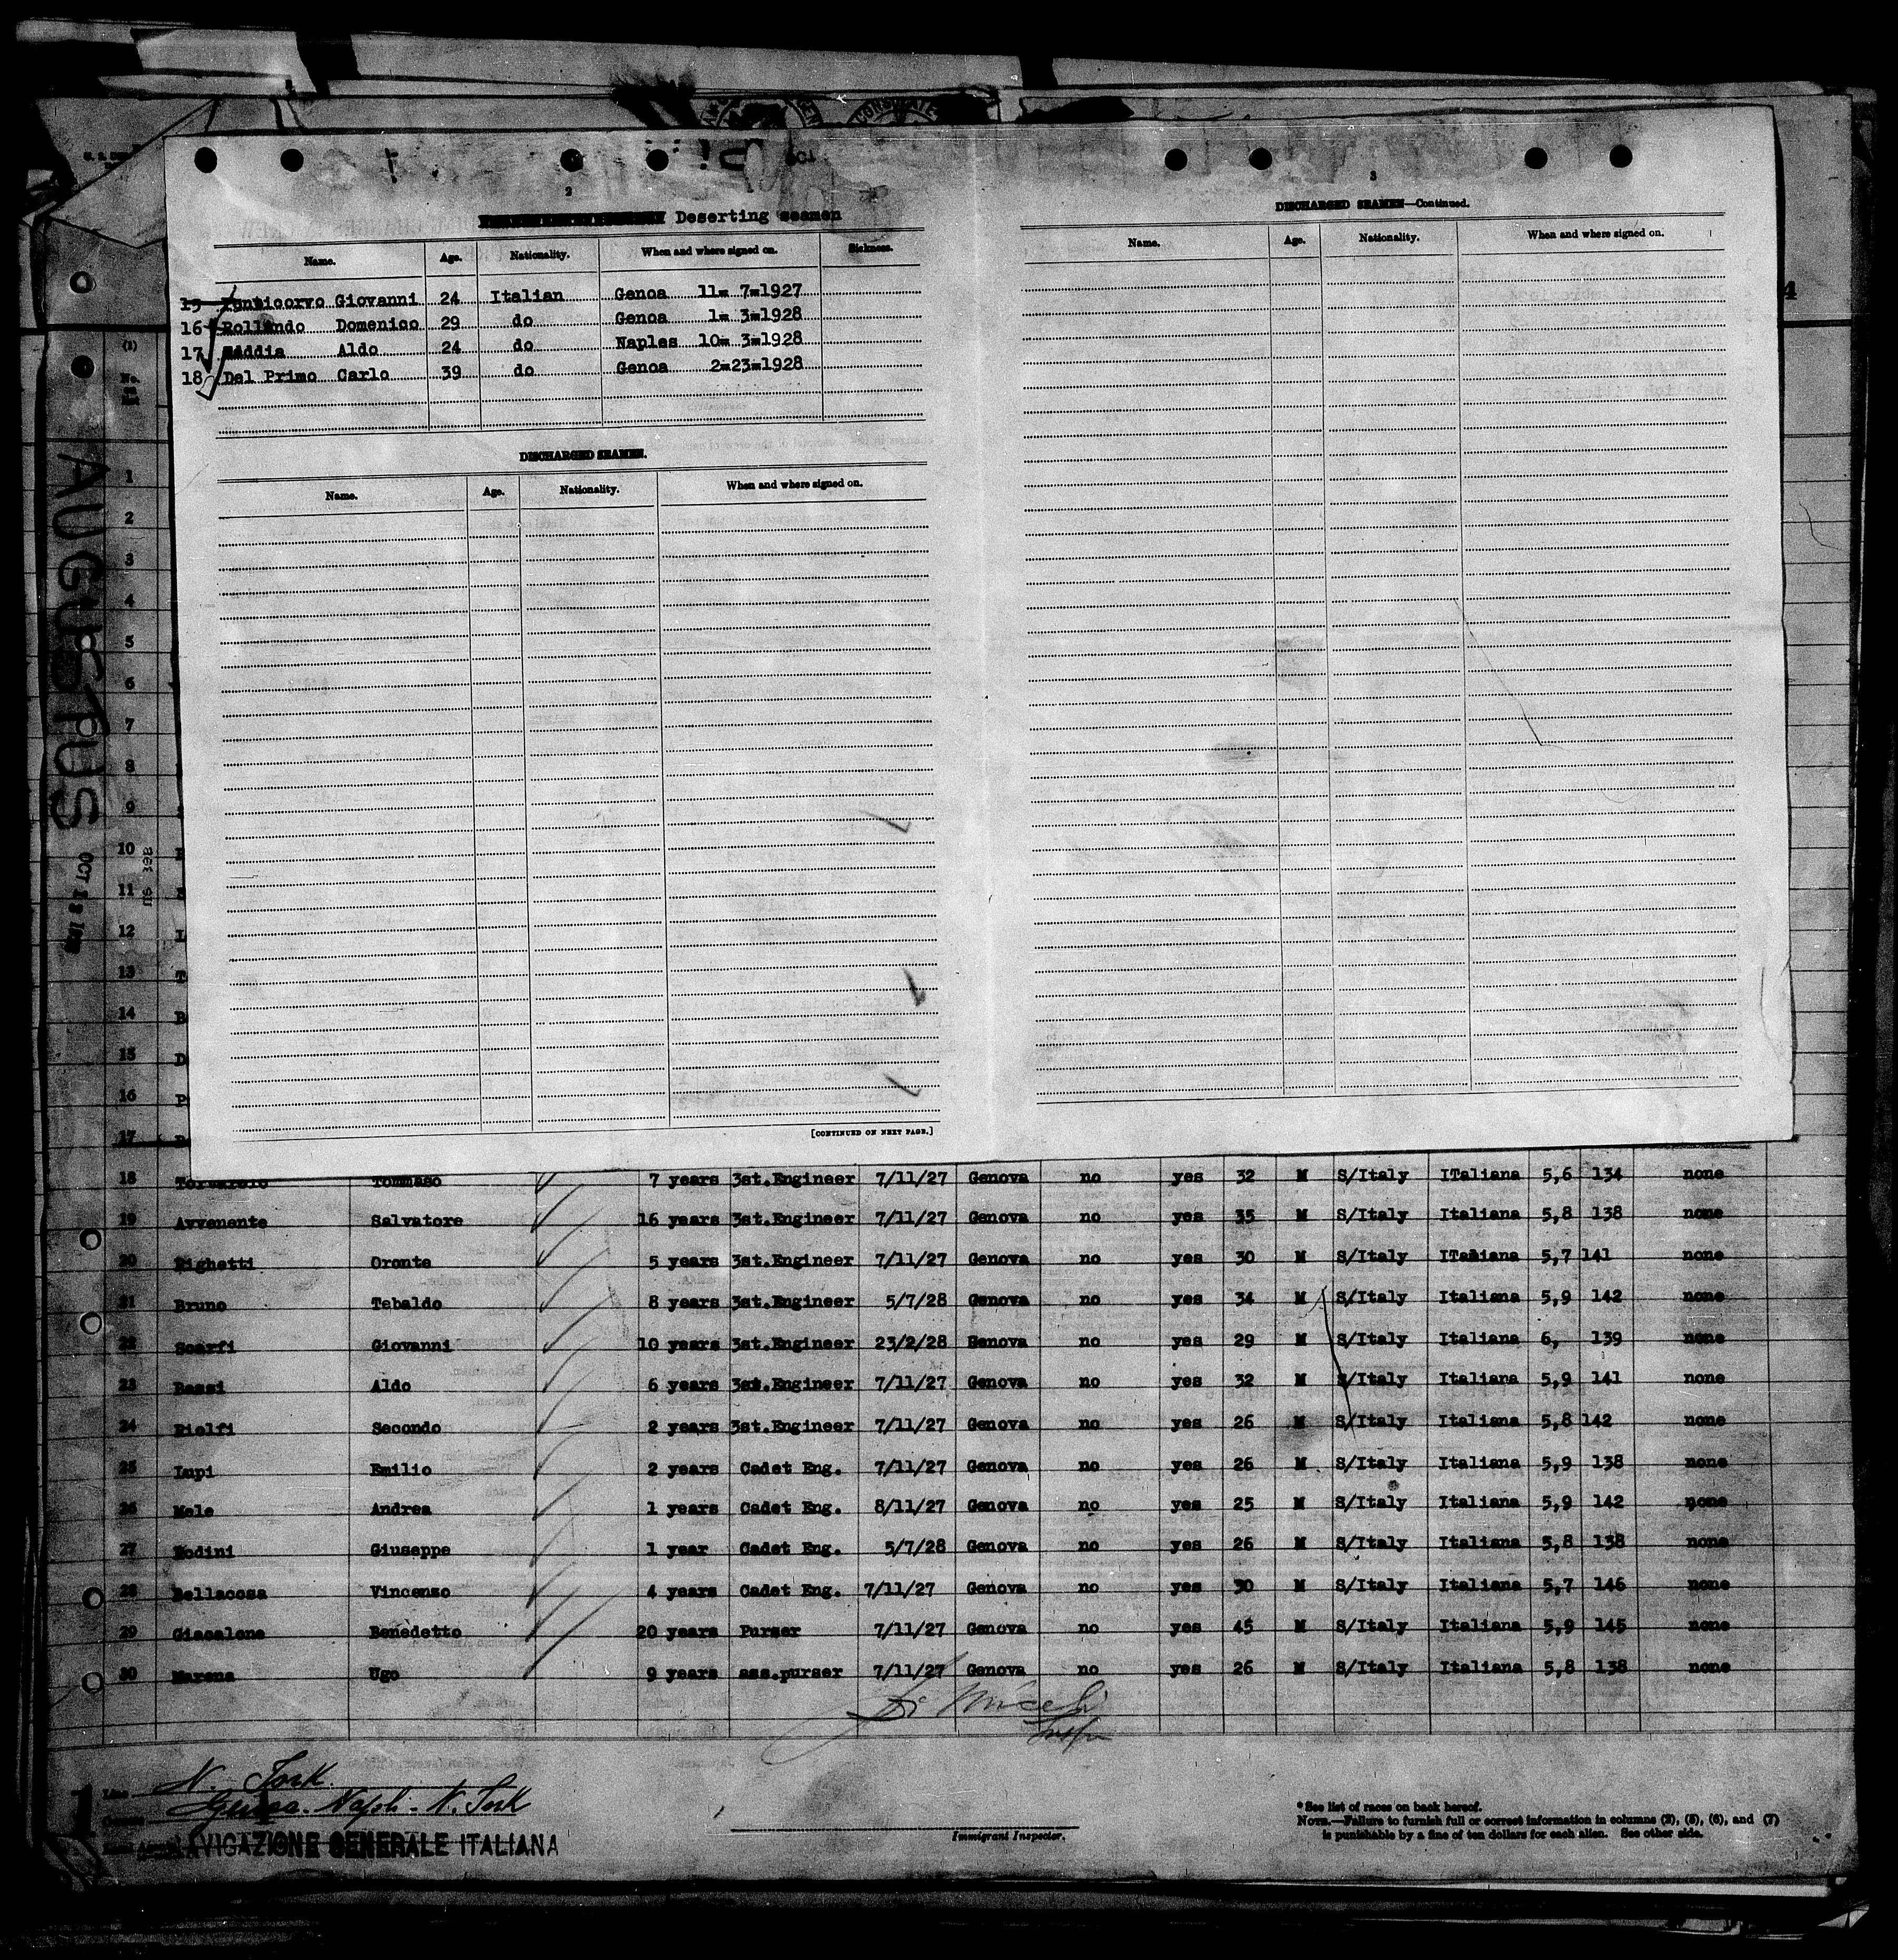 CONSULATE
2
Deserting seamen
Name. Age. Nationality. When and where signed on. Sickness.
15 Giovanni 24 Italian Genoa 11- 7-1927
16 Rollando Domenico 29 do Genoa 1- 3-1928
17 Aldo 24 do Naples 10- 3-1928
18 Del Primo Carlo 39 do Genoa 2-23-1928
DISCHARGED SEAMEN.
Name. Age. Nationality. When and where signed on.
[CONTINUED ON NEXT PAGE.]
3
DISCHARGED SEAMEN—Continued.
Name. Age. Nationality. When and where signed on.
4
(1)
No.
AUGUSTUS
OCT
1
2
3
4
5
6
7
8
9
10
11
12
13
14
15
16
17
18 Tommaso 7 years 3st.Engineer 7/11/27 Genova no yes 32 M S/Italy ITaliana 5,6 134 none
19 Avvenente Salvatore 16 years 3st.Engineer 7/11/27 Genova no yes 35 M S/Italy Italiana 5,8 138 none
20 Righetti Oronte 5 years 3st.Engineer 7/11/27 Genova no yes 30 M S/Italy ITaliana 5,7 141 none
21 Bruno Tebaldo 8 years 3st.Engineer 5/7/28 Genova no yes 34 M S/Italy Italiana 5,9 142 none
22 Scarfi Giovanni 10 years 3st.Engineer 23/2/28 Genova no yes 29 M S/Italy Italiana 6, 139 none
23 Bassi Aldo 6 years 3st.Engineer 7/11/27 Genova no yes 32 M S/Italy Italiana 5,9 141 none
24 Rielfi Secondo 2 years 3st.Engineer 7/11/27 Genova no yes 26 M S/Italy Italiana 5,8 142 none
25 Lupi Emilio 2 years Cadet Eng. 7/11/27 Genova no yes 26 M S/Italy Italiana 5,9 138 none
26 Mele Andrea 1 years Cadet Eng. 8/11/27 Genova no yes 25 M S/Italy Italiana 5,9 142 none
27 Modini Giuseppe 1 year Cadet Eng. 5/7/28 Genova no yes 26 M S/Italy Italiana 5,8 138 none
28 Bellacosa Vincenso 4 years Cadet Eng. 7/11/27 Genova no yes 30 M S/Italy Italiana 5,7 146 none
29 Giacalone Benedetto 20 years Purser 7/11/27 Genova no yes 45 M S/Italy Italiana 5,9 145 none
30 Marena Ugo 9 years ass.purser 7/11/27 Genova no yes 26 M S/Italy Italiana 5,8 138 none
1
Line N. York
Genova - Napoli - N. York
NAVIGAZIONE GENERALE ITALIANA
Immigrant Inspector.
* See list of races on back hereof.
NOTE.—Failure to furnish full or correct information in columns (2), (5), (6), and (7)
is punishable by a fine of ten dollars for each alien. See other side.